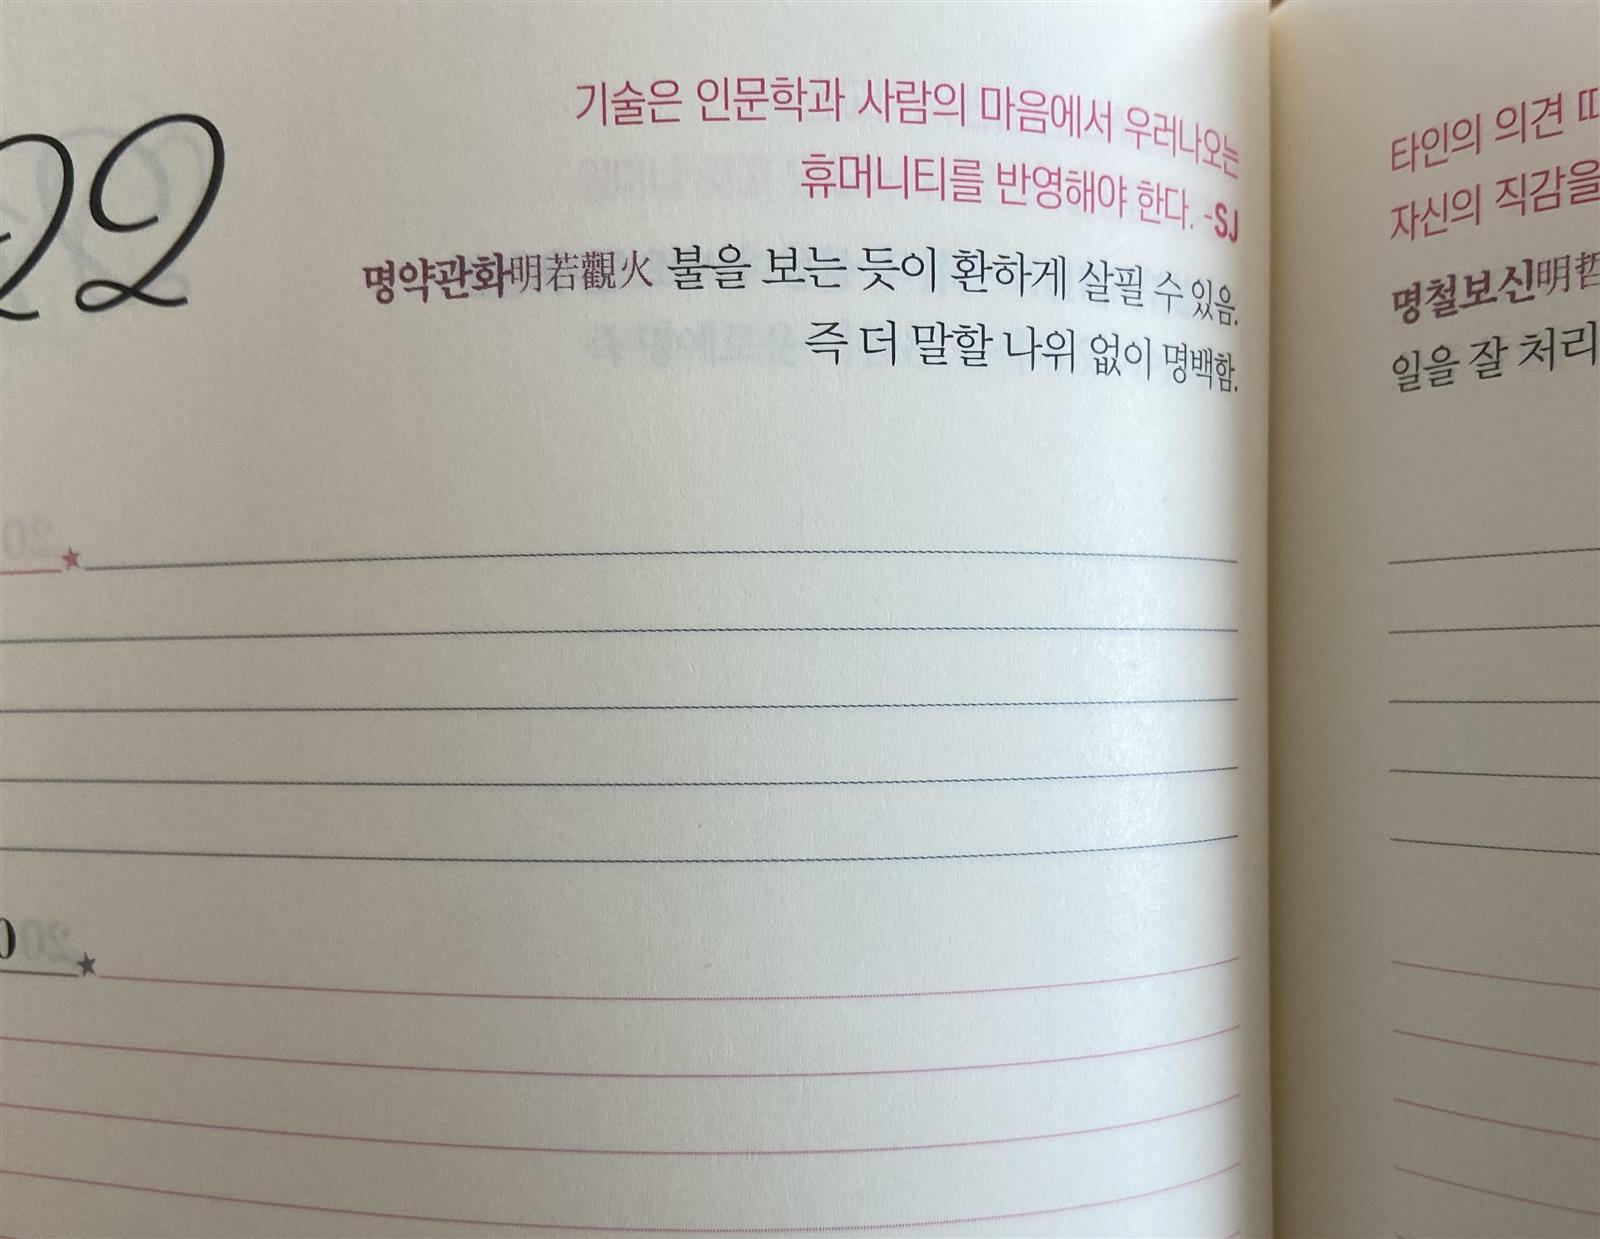 22
기술은 인문학과 사람의 마음에서 우러나오는
휴머니티를 반영해야 한다. -SJ
명약관화明若觀火 불을 보는 듯이 환하게 살필 수 있음.
즉 더 말할 나위 없이 명백함.
20
0
20
타인의 의견
자신의 직감을
명철보신明哲
일을 잘 처리